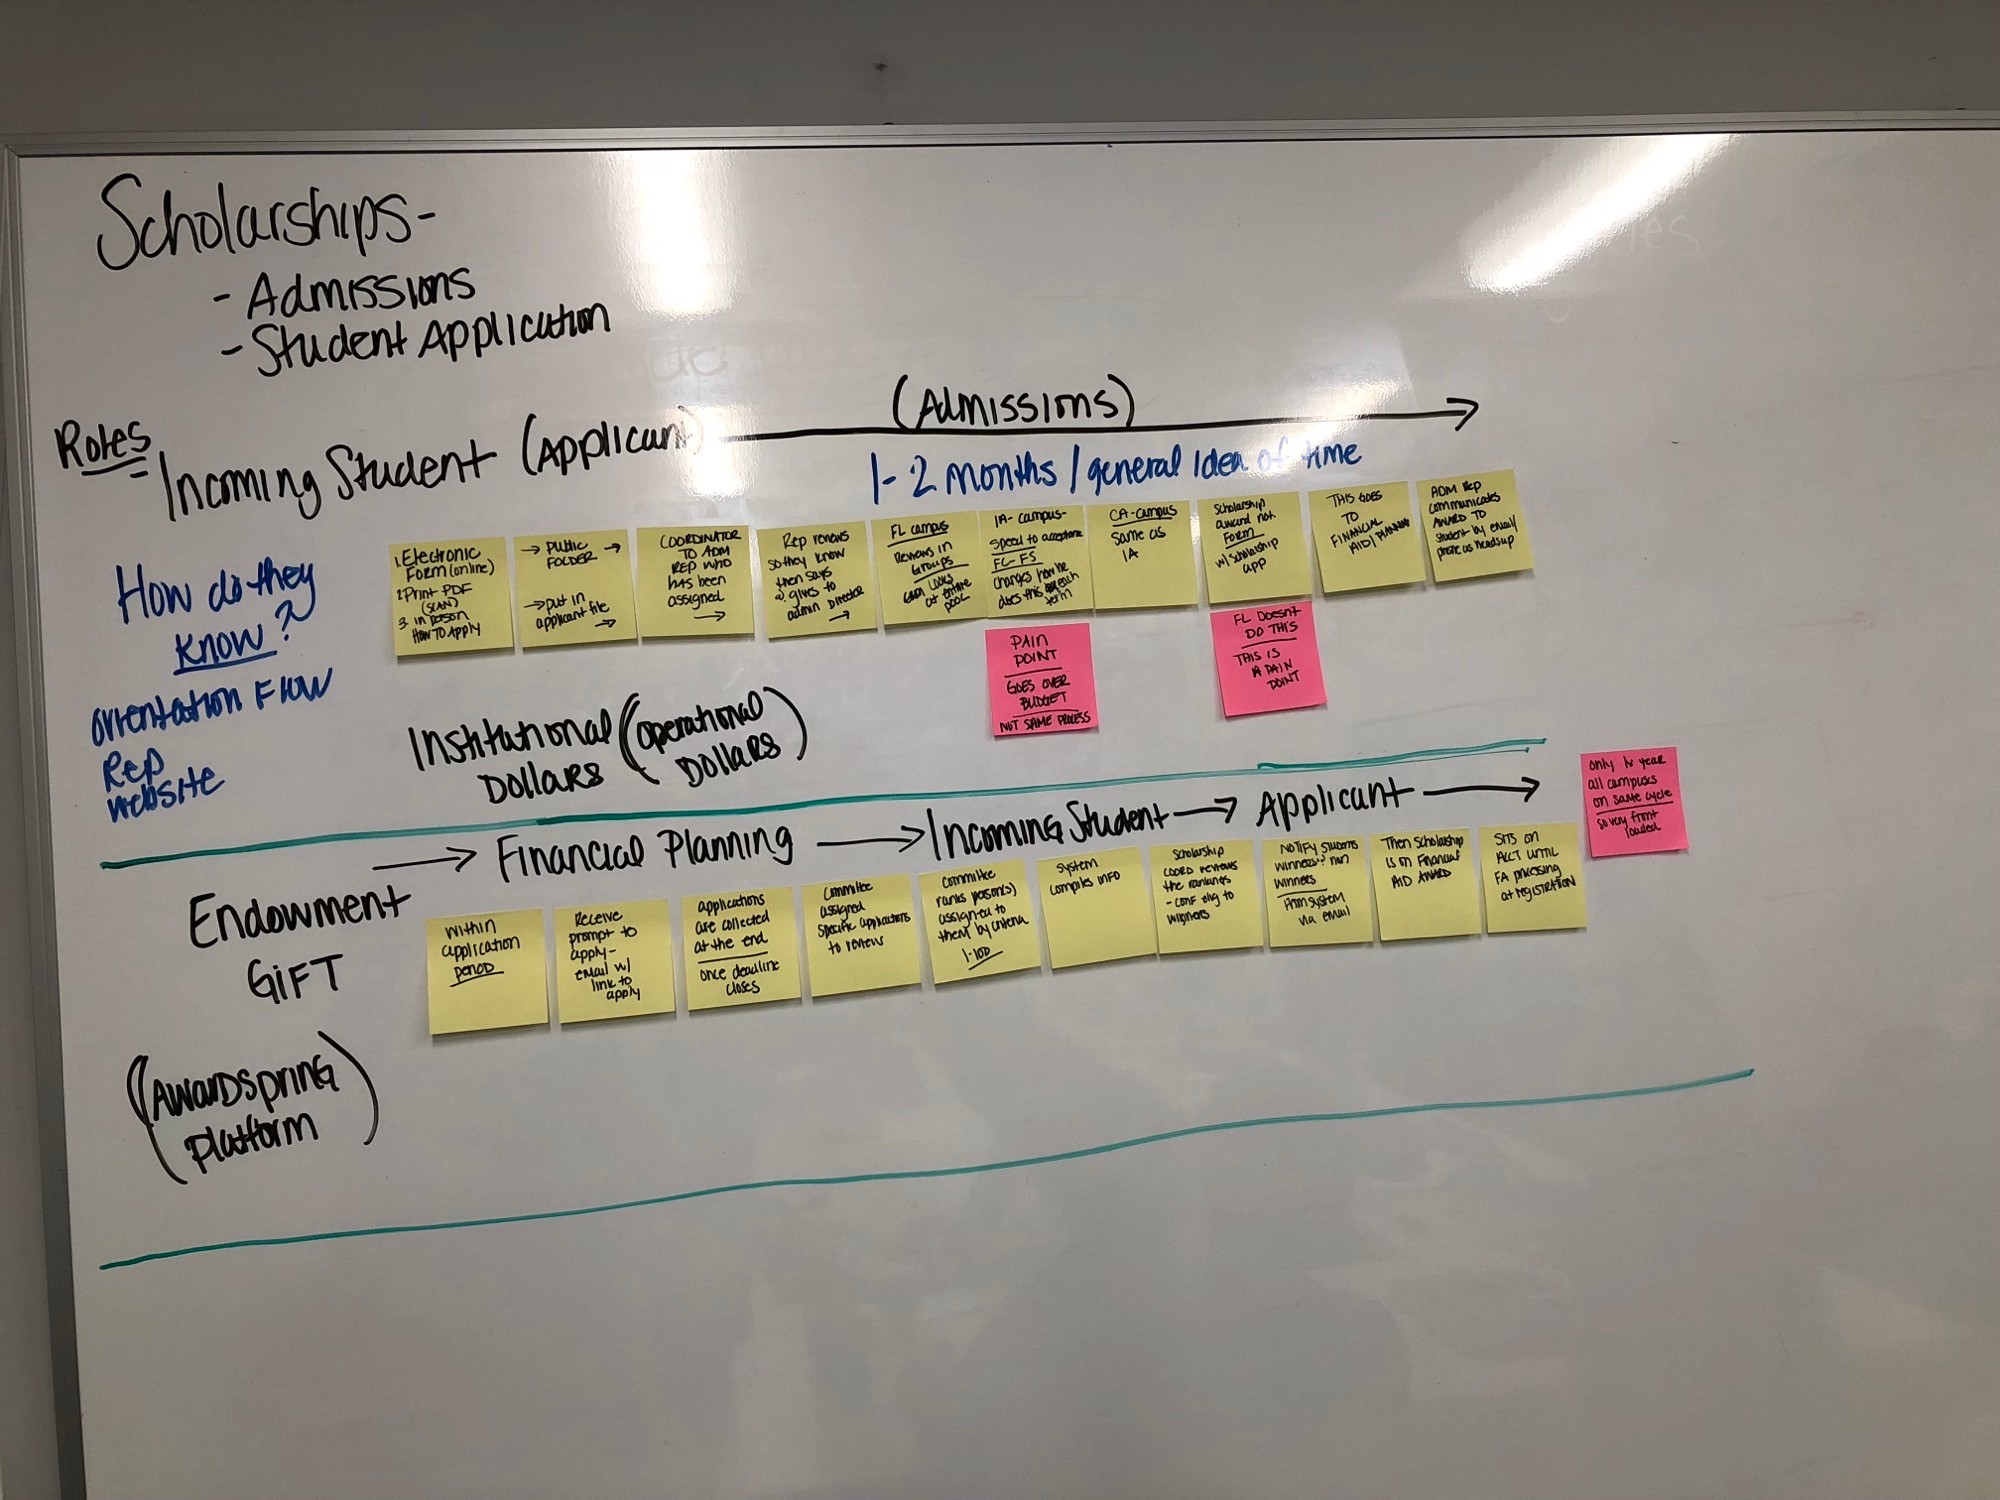 Scholarships-
- Admissions
- Student Application
Roles
Incoming Student (Applicant)
(Admissions)
1-2 months / general idea of time
How do they
know?
orientation Flow
Rep
website
1. Electronic
Form (online)
2. Print PDF
(SCAN)
3. in person
How to Apply
→ Public →
FOLDER
→ put in
applicant file →
COORDINATOR
TO ADM
REP WHO
has been
assigned
→
Rep reviews
so they know
then says
gives to
admin Director
→
FL campus
Reviews in
Groups
looks
at entire
pool
IA- campus-
speed to acceptance
FC-FS
changes how he
does this each
term
CA-campus
Same as
IA
Scholarship
award not.
Form
w/ scholarship
app
THIS GOES
TO
FINANCIAL
AID/PLANNING
ADM Rep
communicates
AWARD TO
student by email/
phone as heads up
PAIN
POINT
GOES OVER
BUDGET
NOT SAME PROCESS
FL Doesnt
DO THIS
THIS IS
A PAIN
POINT
Institutional
Dollars
(operational
Dollars)
→ Financial Planning → Incoming Student → Applicant →
only 1x year
all campuses
on same cycle
so very front
loaded
Endowment
GIFT
(Awardspring
Platform)
within
application
period
Receive
prompt to
apply-
email w/
link to
apply
applications
are collected
at the end
once deadline
closes
committee
assigned
specific applications
to review
committee
ranks person(s)
assigned to
them by criteria
1-100
system
compiles info
Scholarship
COORD reviews
the rankings
- conf elig to
winners
NOTIFY STUDENTS
winners? non
winners
from system
via email
Then Scholarship
IS ON Financial
AID AWARD
SITS ON
ACCT UNTIL
FA processing
at registration